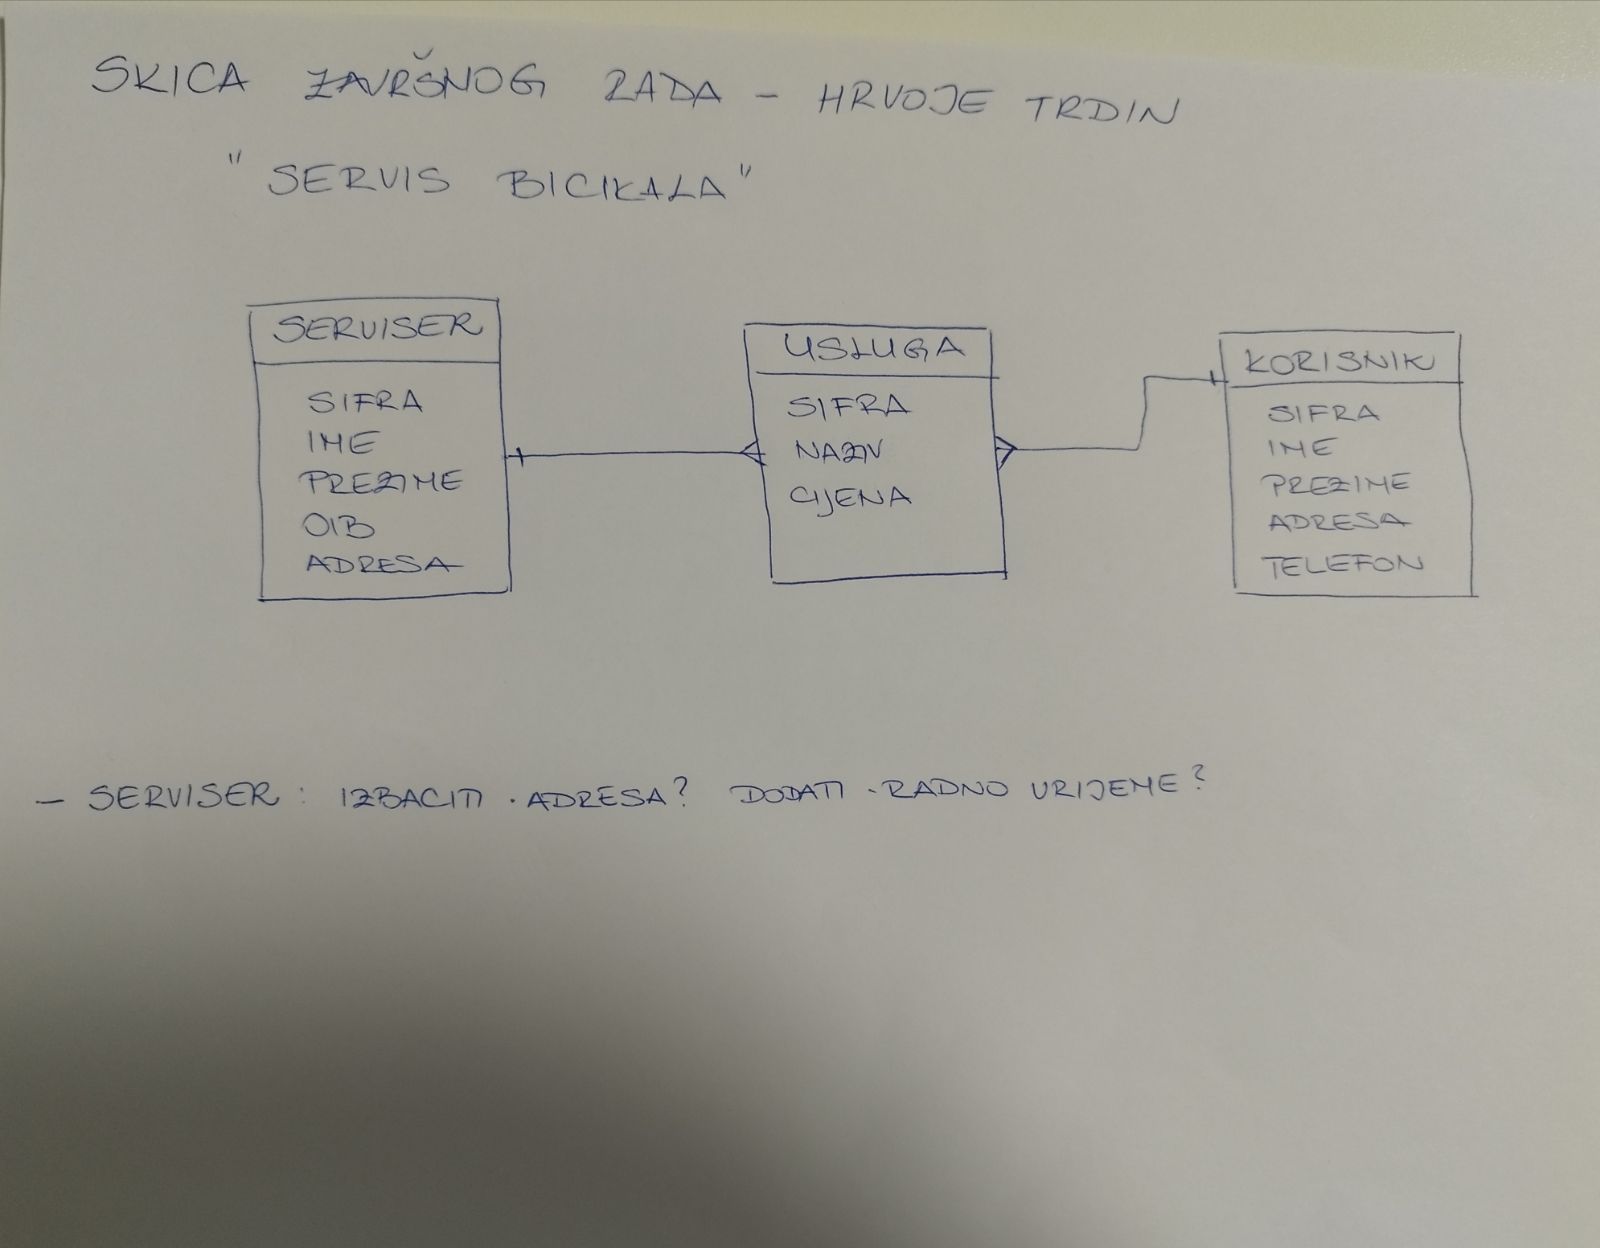 SKICA ZAVRŠNOG RADA - HRVOJE TRDIN
"SERVIS BICIKALA"
SERVISER
SIFRA
IME
PREZIME
OIB
ADRESA
USLUGA
SIFRA
NAZIV
CIJENA
KORISNIK
SIFRA
IME
PREZIME
ADRESA
TELEFON
- SERVISER: IZBACITI · ADRESA? DODATI · RADNO VRIJEME?